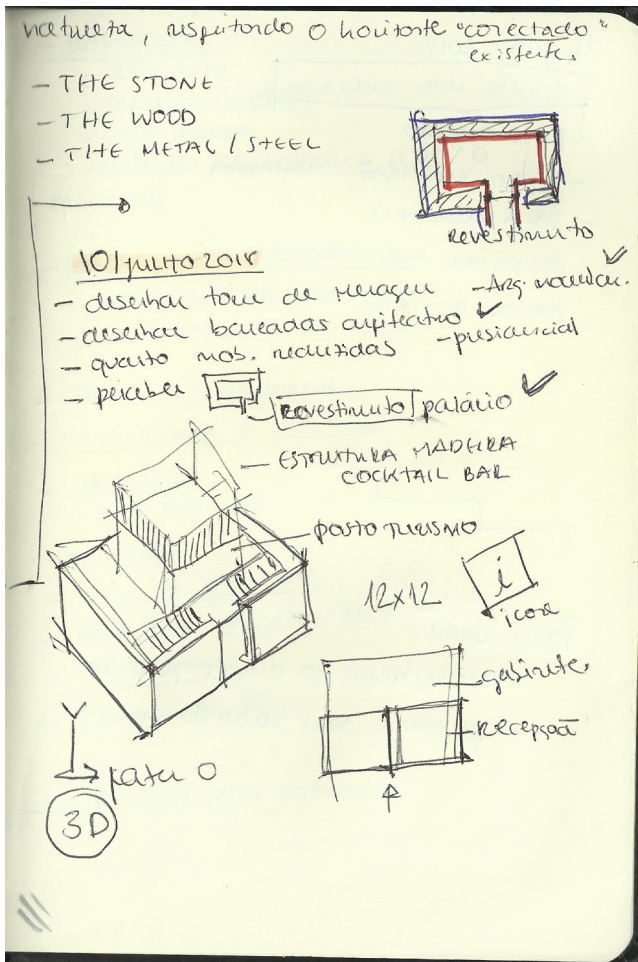 natureza, respeitando o horizonte "conectado"
existente.
- THE STONE
- THE WOOD
- THE METAL / STEEL
revestimento
10/julho 2018
- desenhar torre de menagem
- desenhar bancadas anfiteatro
- presidencial
- quarto mob. reduzidas
- perceber
revestimento palácio
- ESTRUTURA MADEIRA
COCKTAIL BAR
posto turismo
12x12
i
icone
gabinete
recepção
para O
3D